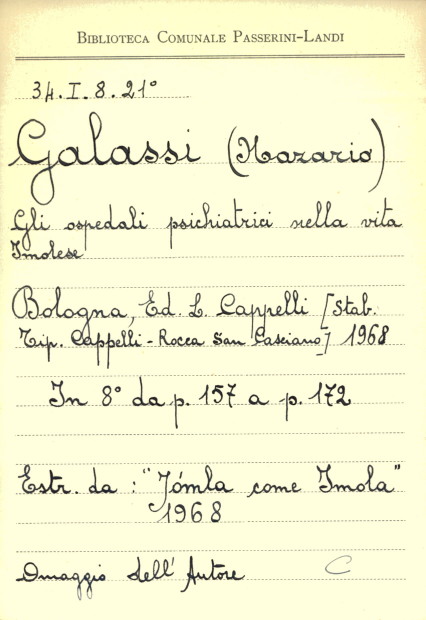 BIBLIOTECA COMUNALE PASSERINI-LANDI
34.I.8.21°
Galassi (Nazario)
Gli ospedali psichiatrici nella vita
Imolese
Bologna, Ed. L. Cappelli [Stab.
Tip. Cappelli - Rocca San Casciano] 1968
In 8° da p. 157 a p. 172
Estr. da : "Jómla come Imola"
1968
Omaggio dell'Autore C